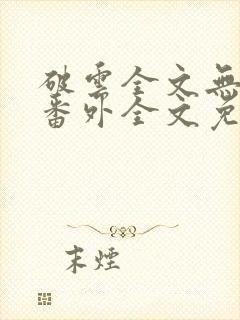 破雲全文無
番外全文免
末煙